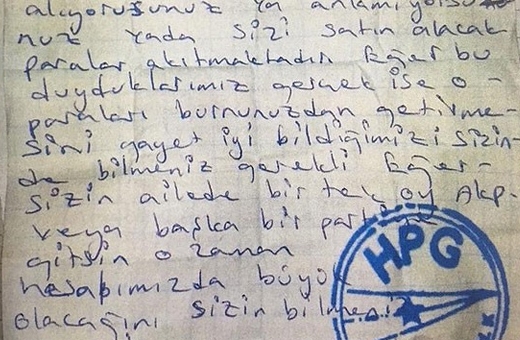 alıyorsunuz ya anlamıyorsu
nuz yada sizi satın alacak
paralar akıtmaktadır Eğer bu
duyduklarımız gerçek ise o -
paraları burnunuzdan getirme-
sini gayet iyi bildiğimizi sizin-
de bilmeniz gerekli Eğer-
sizin ailede bir tek oy Akp-
veya başka bir
gitsin o zaman
hesabımızda büyük
olacağını sizin bilmeniz
HPG